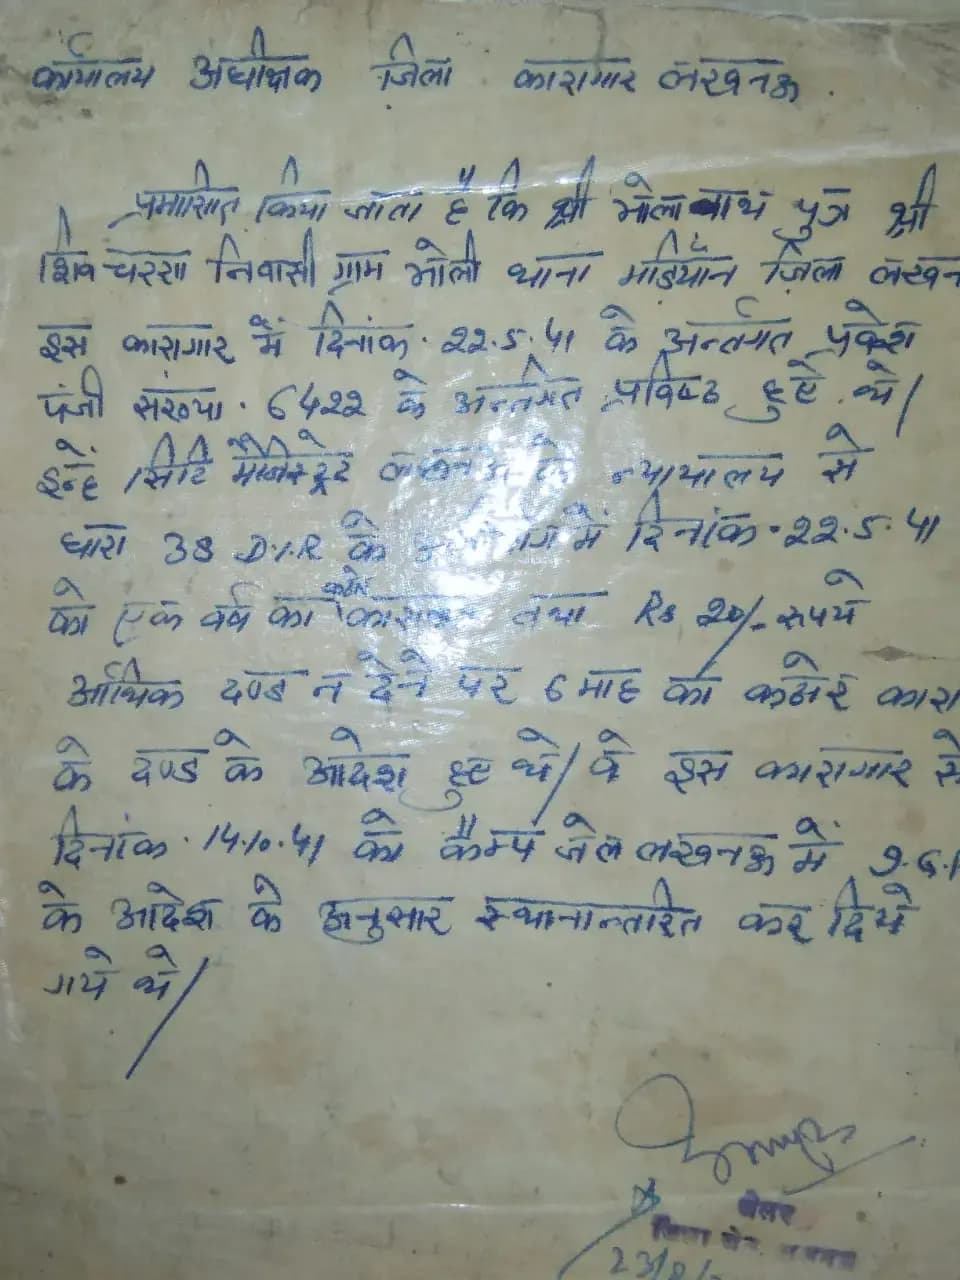 कार्यालय अधीक्षक जिला कारागार लखनऊ.
प्रमाणित किया जाता है कि श्री भोला नाथ पुत्र श्री
शिव चरण निवासी ग्राम मौली थाना मड़ियाँन ज़िला लखन
इस कारागार में दिनांक. 22.5.41 के अर्न्तगत प्रवेश
पंजी संख्या. 6422 के अन्तर्गत प्रविष्ठ हुऐ थे/
इन्हें सिटि मैजिस्ट्रेट लखनऊ के न्यायालय से
धारा 38 D.I.R के में दिनांक. 22.5.41
को एक वर्ष का कठोर तथा Rs 20/- रुपये
आर्थिक दण्ड न देने पर 6 माह का कठोर कारा
के दण्ड के आदेश हुए थे/ वे इस कारागार से
दिनांक. 14.10.41 को कैम्प जेल लखनऊ में
के आदेश के अनुसार स्थानान्तरित कर दिये
गये थे/
जेलर
जिला जेल लखनऊ